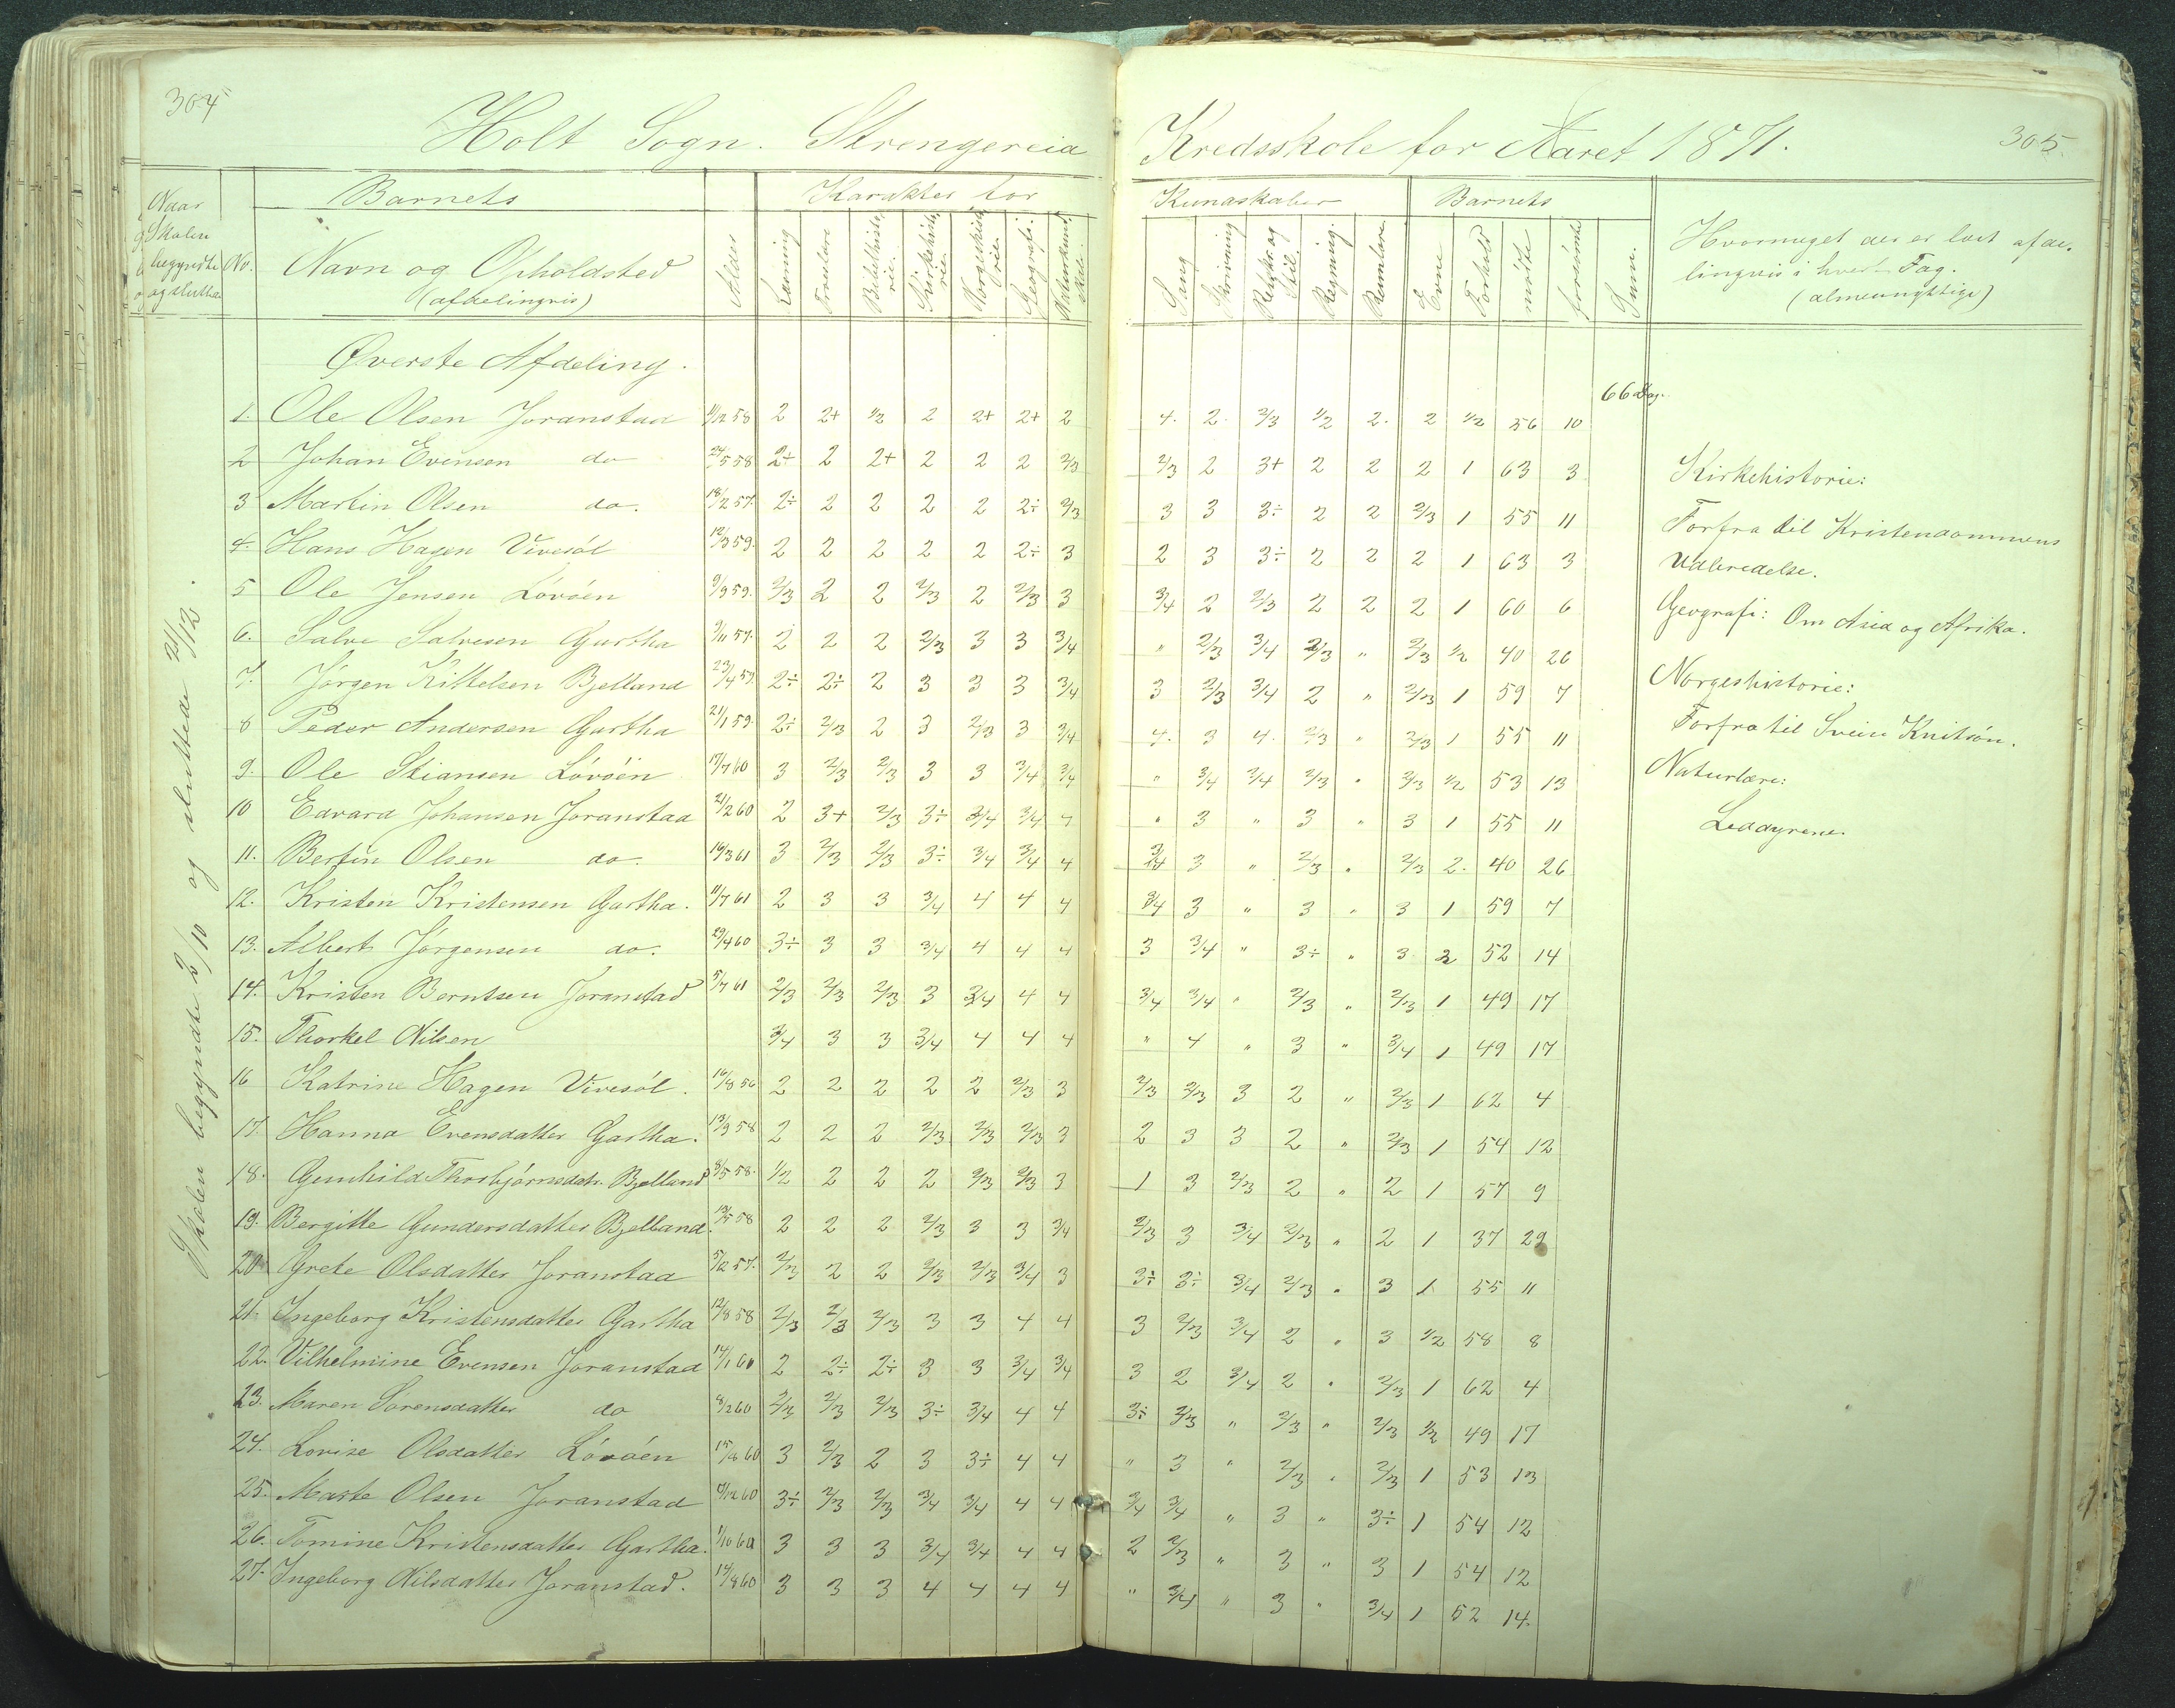 304
305
Holt Sogn. Strengereia Kredsskole for Aaret 1871.
Naar Skolen begyndte og sluttede
No.
Barnets
Navn og Opholdsted
(afdelingvis)
Alder
Karakter for Kundskaber
Læsning Troeslære Bibelhistorie. Kirkehistorie. Norgeshistorie. Geografi. Naturkundskab.
Sang Skrivning Retskr. og Stil. Regning. Rumlære
Barnets
Evne Forhold mødte forsømte Sum.
Hvormeget der er læst afdelingvis i hvert Fag.
(almennyttige)
Skolen begyndte 2/10 og sluttede 21/12.
Øverste Afdeling.
66 Dag.
1. Ole Olsen Joranstad 11/12 58 2 2+ 1/2 2 2+ 2+ 2 4. 2. 2/3 1/2 2. 2 1/2 56 10
2 Johan Evensen do 24/5 58 2÷ 2 2+ 2 2 2 2/3 2/3 2 3+ 2 2 2 1 63 3
3 Martin Olsen do. 18/2 57. 2÷ 2 2 2 2 2÷ 2/3 3 3 3÷ 2 2 2/3 1 55 11
4. Hans Hagen Vivesøl 12/3 59. 2 2 2 2 2 2÷ 3 2 3 3÷ 2 2 2 1 63 3
5 Ole Jensen Løvøen 9/9 59. 2/3 2 2 2/3 2 2/3 3 3/4 2 2/3 2 2 2 1 60 6
6. Salve Salvesen Gartha 9/11 57. 2 2 2 2/3 3 3 3/4 " 2/3 3/4 2/3 " 2/3 1/2 40 26
7. Jørgen Kittelsen Bjelland 23/4 57. 2÷ 2÷ 2 3 3 3 3/4 3 2/3 3/4 2 " 2/3 1 59 7
8 Peder Andersen Gartha 21/1 59. 2÷ 2/3 2 3 2/3 3 3/4 4. 3 4. 2/3 " 2/3 1 55 11
9. Ole Stiansen Løvøen 17/7 60 3 2/3 2/3 3 3 3/4 3/4 " 3/4 3/4 2/3 " 2/3 1/2 53 13
10 Edvard Johansen Joranstad 21/2 60 2 3+ 2/3 3÷ 3/4 3/4 4 " 3 " 3 " 3 1 55 11
11. Bertin Olsen do. 16/3 61 3 2/3 2/3 3÷ 3/4 3/4 4 3/4 3 " 2/3 " 2/3 2. 40 26
12. Kristen Kristensen Gartha. 11/7 61 2 3 3 3/4 4 4 4 3/4 3 " 3 " 3 1 59 7
13. Albert Jørgensen do. 29/4 60 3÷ 3 3 3/4 4 4 4 3 3/4 " 3÷ " 3 2 52 14
14. Kristen Berntsen Joranstad 5/7 61 2/3 2/3 2/3 3 3/4 4 4 3/4 3/4 " 2/3 " 2/3 1 49 17
15. Thorkel Nilsen 3/4 3 3 3/4 4 4 4 " 4 " 3 " 3/4 1 49 17
16 Katrine Hagen Vivesøl. 16/8 56 2 2 2 2 2 2/3 3 2/3 2/3 3 2 " 2/3 1 62 4
17. Hanna Evensdatter Gartha. 13/9 58 2 2 2 2/3 2/3 2/3 3 2 3 3 2 " 2/3 1 54 12
18. Gunhild Thorbjørnsdatr. Bjelland 8/5 58. 1/2 2 2 2 2/3 2/3 3 1 3 2/3 2 " 2 1 57 9
19. Bergitte Gundersdatter Bjelland. 13/5 58 2 2 2 2/3 3 3 3/4 2/3 3 3/4 2/3 " 2 1 37 29
20 Grete Olsdatter Joranstad 5/12 57. 2/3 2 2 2/3 2/3 3/4 3 3÷ 3÷ 3/4 2/3 " 3 1 55 11
21. Ingeborg Kristensdatter Gartha 12/8 58 2/3 2/3 2/3 3 3 4 4 3 2/3 3/4 2 " 3 1/2 58 8
22. Vilhelmine Evensen Joranstad 14/1 60 2 2÷ 2÷ 3 3 3/4 3/4 3 2 3/4 2 " 2/3 1 62 4
23. Maren Sørensdatter do 8/2 60 2/3 2/3 2/3 3÷ 3/4 4 4 3÷ 2/3 " 2/3 " 2/3 1/2 49 17
24. Lovise Olsdatter Løvøen 15/8 60 3 2/3 2 3 3÷ 4 4 " 3 " 2/3 " 2/3 1 53 13
25. Marte Olsen Joranstad 9/12 60 3÷ 2/3 2/3 3/4 3/4 4 4 3/4 3/4 " 3 " 3÷ 1 54 12
26. Tomine Kristensdatter Gartha. 1/10 60 3 3 3 3/4 3/4 4 4 2 2/3 " 3 " 3 1 54 12
27. Ingeborg Nilsdatter Joranstad. 14/8 60 3 3 3 4 4 4 4 " 3/4 " 3 " 3/4 1 52 14.
Kirkehistorie:
Forfra til Kristendommens
Udbredelse.
Geografi: Om Asia og Afrika.
Norgeshistorie:
Forfra til Svein Knitsøn.
Naturlære:
Leddyrene.